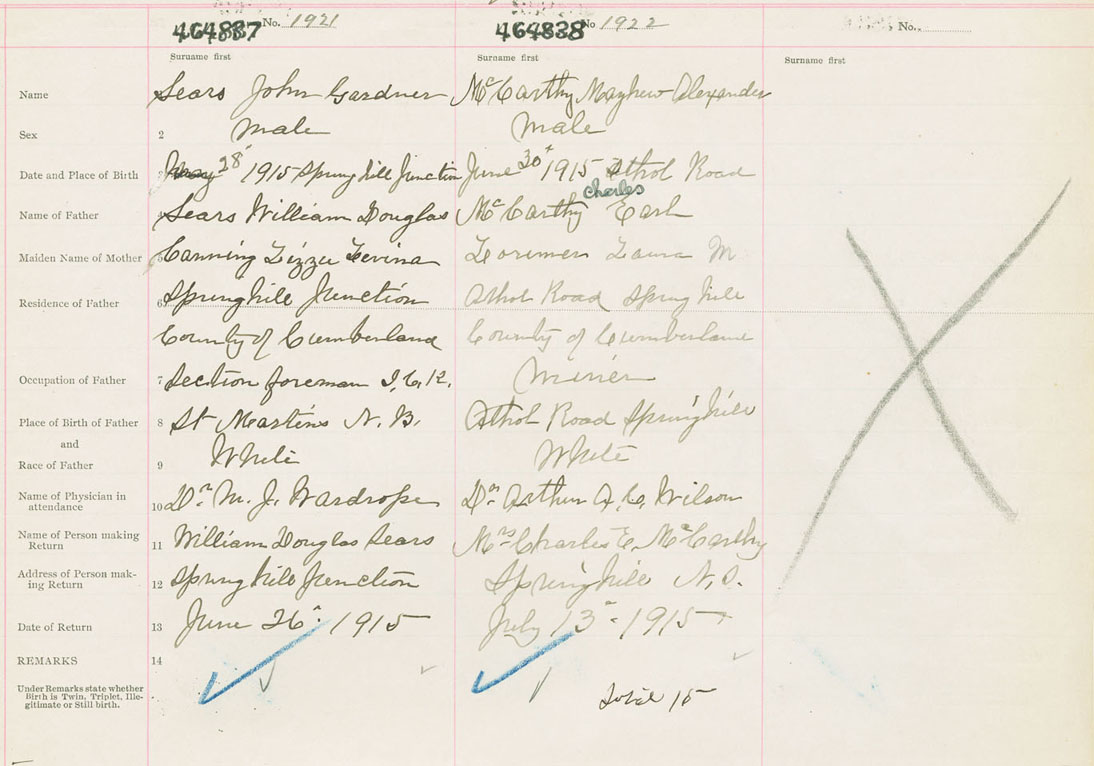 464837 No. 1921
464838 No 1922
No.
Surname first Surname first Surname first
Name Sears John Gardner McCarthy Mayhew Alexander
Sex 2 male male
Date and Place of Birth 3 May 28" 1915 Springhill Junction June 30" 1915 Athol Road
Charles
Name of Father 4 Sears William Douglas McCarthy Earl
Maiden Name of Mother 5 Canning Lizzie Levina Laura M
Residence of Father 6 Springhill Junction Athol Road Springhill
County of Cumberland County of Cumberland
Occupation of Father 7 Section foreman I.C.R. Miner
Place of Birth of Father 8 St Martins N. B. Athol Road Springhill
and
Race of Father 9 White White
Name of Physician in
attendance 10 Dr M. J. Wardrope Dr Arthur A. C. Wilson
Name of Person making
Return 11 William Douglas Sears Mrs Charles E. McCarthy
Address of Person mak-
ing Return 12 Springhill Junction Springhill N.S.
Date of Return 13 June 26" 1915 July 13" 1915
REMARKS 14
Under Remarks state whether
Birth is Twin, Triplet, Ille-
gitimate or Still birth.
Total 15